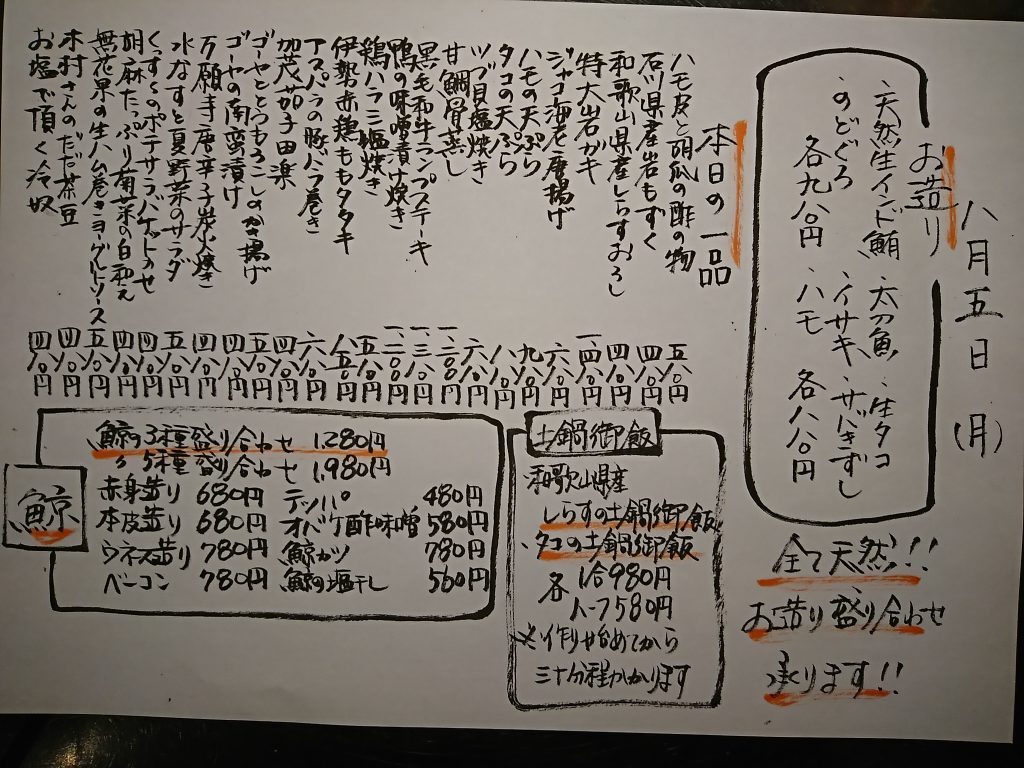 八月五日(月)
お造り
、天然生インド鮪 太刀魚、生タコ
、のどぐろ 、イサキ、サバきずし
各九八〇円 、ハモ 各八八〇円
全て天然!!
お造り盛り合わせ
承ります!!
本日の一品
ハモ皮と胡瓜の酢の物 五八〇円
石川県産岩もずく 四八〇円
和歌山県産しらすおろし 四八〇円
特大岩ガキ
ジャコ海老唐揚げ 六八〇円
ハモの天ぷら 九八〇円
タコの天ぷら
ツブ貝塩焼き 六八〇円
甘鯛骨蒸し
黒毛和牛ランプステーキ
鴨の味噌漬け焼き
鶏ハラミ塩焼き 五八〇円
伊勢赤鶏ももタタキ 八五〇円
アスパラの豚バラ巻き 六八〇円
加茂茄子田楽 四八〇円
ゴーヤととうもろこしのかき揚げ 五八〇円
ゴーヤの南蛮漬け 四八〇円
万願寺唐辛子炭火焼き 四八〇円
水なすと夏野菜のサラダ 五八〇円
くずくずのポテサラバケットのせ 四八〇円
胡麻たっぷり菊菜の白和え 四八〇円
無花果の生ハム巻きヨーグルトソース 五八〇円
木村さんのだだ茶豆 四八〇円
お塩で頂く冷奴 四八〇円
土鍋御飯
和歌山県産
しらすの土鍋御飯
、タコの土鍋御飯
各 1合980円
ハーフ580円
※作り始めてから
三十分程かかります
鯨
鯨の3種盛り合わせ 1,280円
〃 5種盛り合わせ 1,980円
赤身造り 680円 テッパ 480円
本皮造り 680円 オバケ酢味噌 580円
ウネス造り 780円 鯨カツ 780円
ベーコン 780円 鯨の塩干し 560円